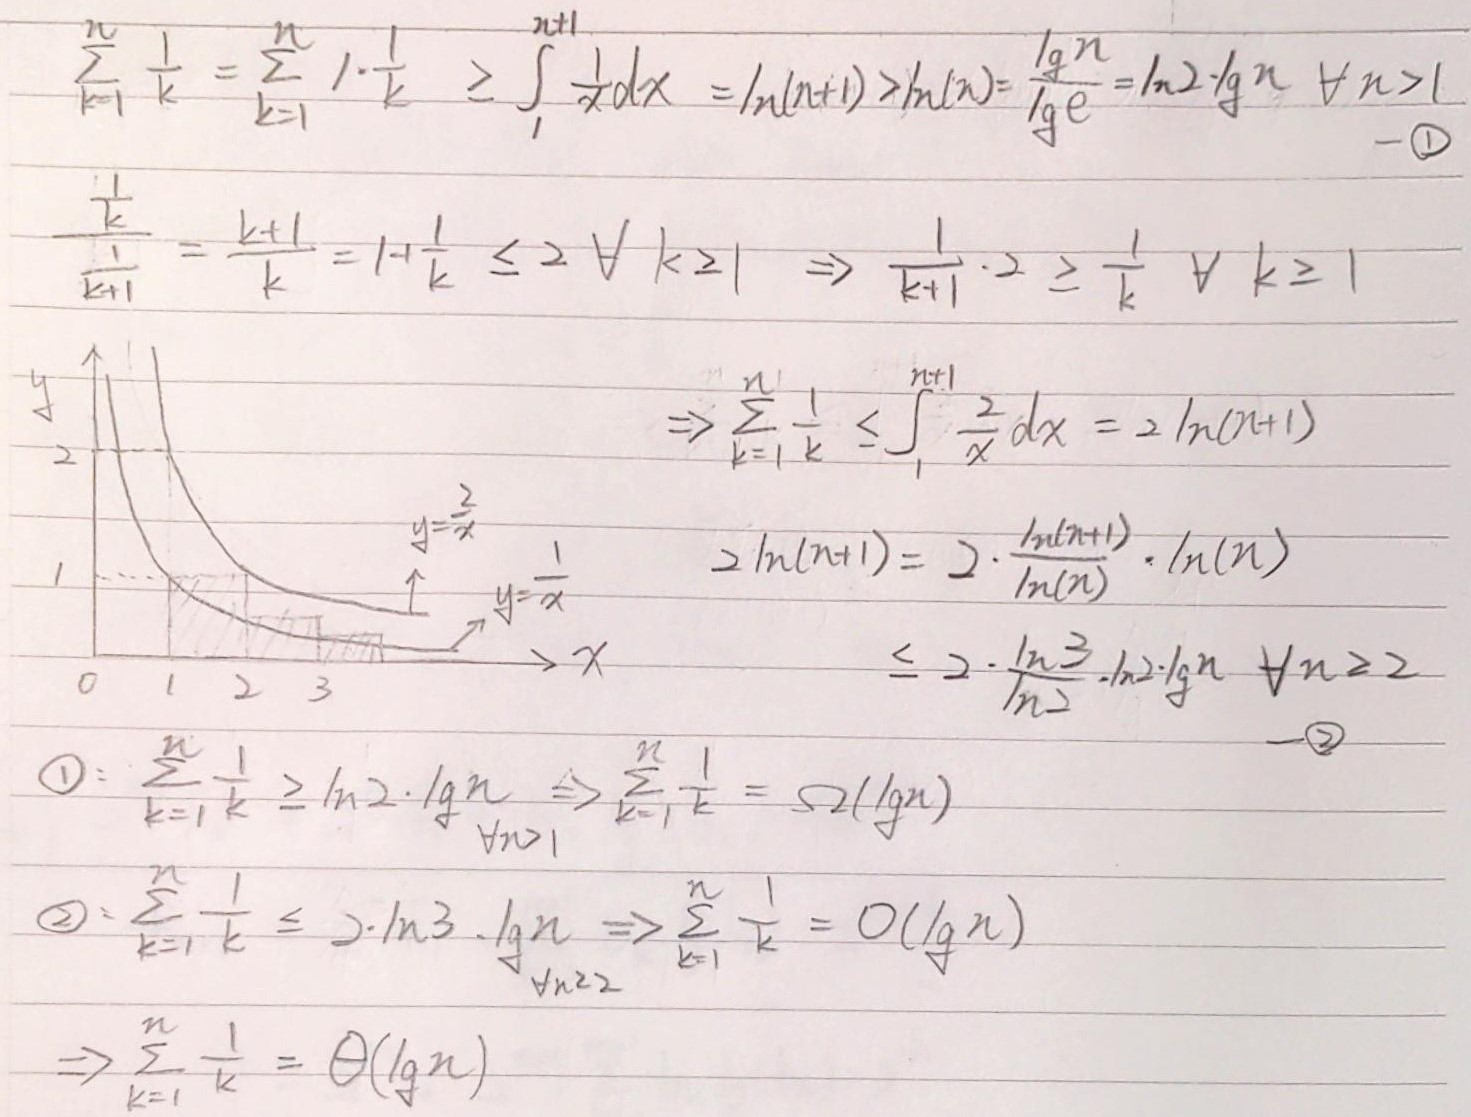 \sum_{k=1}^{n} \frac{1}{k} = \sum_{k=1}^{n} 1 \cdot \frac{1}{k} \geq \int_{1}^{n+1} \frac{1}{x} dx = ln(n+1) > ln(n) = \frac{lg n}{lg e} = ln2 \cdot lg n ∀ n > 1
— ①
\frac{\frac{1}{k}}{\frac{1}{k+1}} = \frac{k+1}{k} = 1 + \frac{1}{k} ≤ 2 ∀ k ≥ 1 ⇒ \frac{1}{k+1} \cdot 2 ≥ \frac{1}{k} ∀ k ≥ 1
y
2
1
0 1 2 3
x
y = \frac{2}{x}
y = \frac{1}{x}
⇒ \sum_{k=1}^{n} \frac{1}{k} ≤ \int_{1}^{n+1} \frac{2}{x} dx = 2 ln(n+1)
2 ln(n+1) = 2 \cdot \frac{ln(n+1)}{ln(n)} \cdot ln(n)
≤ 2 \cdot \frac{ln3}{ln2} \cdot ln2 \cdot lg n ∀ n ≥ 2
— ②
①: \sum_{k=1}^{n} \frac{1}{k} ≥ ln2 \cdot lg n ∀n>1 ⇒ \sum_{k=1}^{n} \frac{1}{k} = Ω(lg n)
②: \sum_{k=1}^{n} \frac{1}{k} ≤ 2 \cdot ln3 \cdot lg n ∀n≥2 ⇒ \sum_{k=1}^{n} \frac{1}{k} = O(lg n)
⇒ \sum_{k=1}^{n} \frac{1}{k} = θ(lg n)